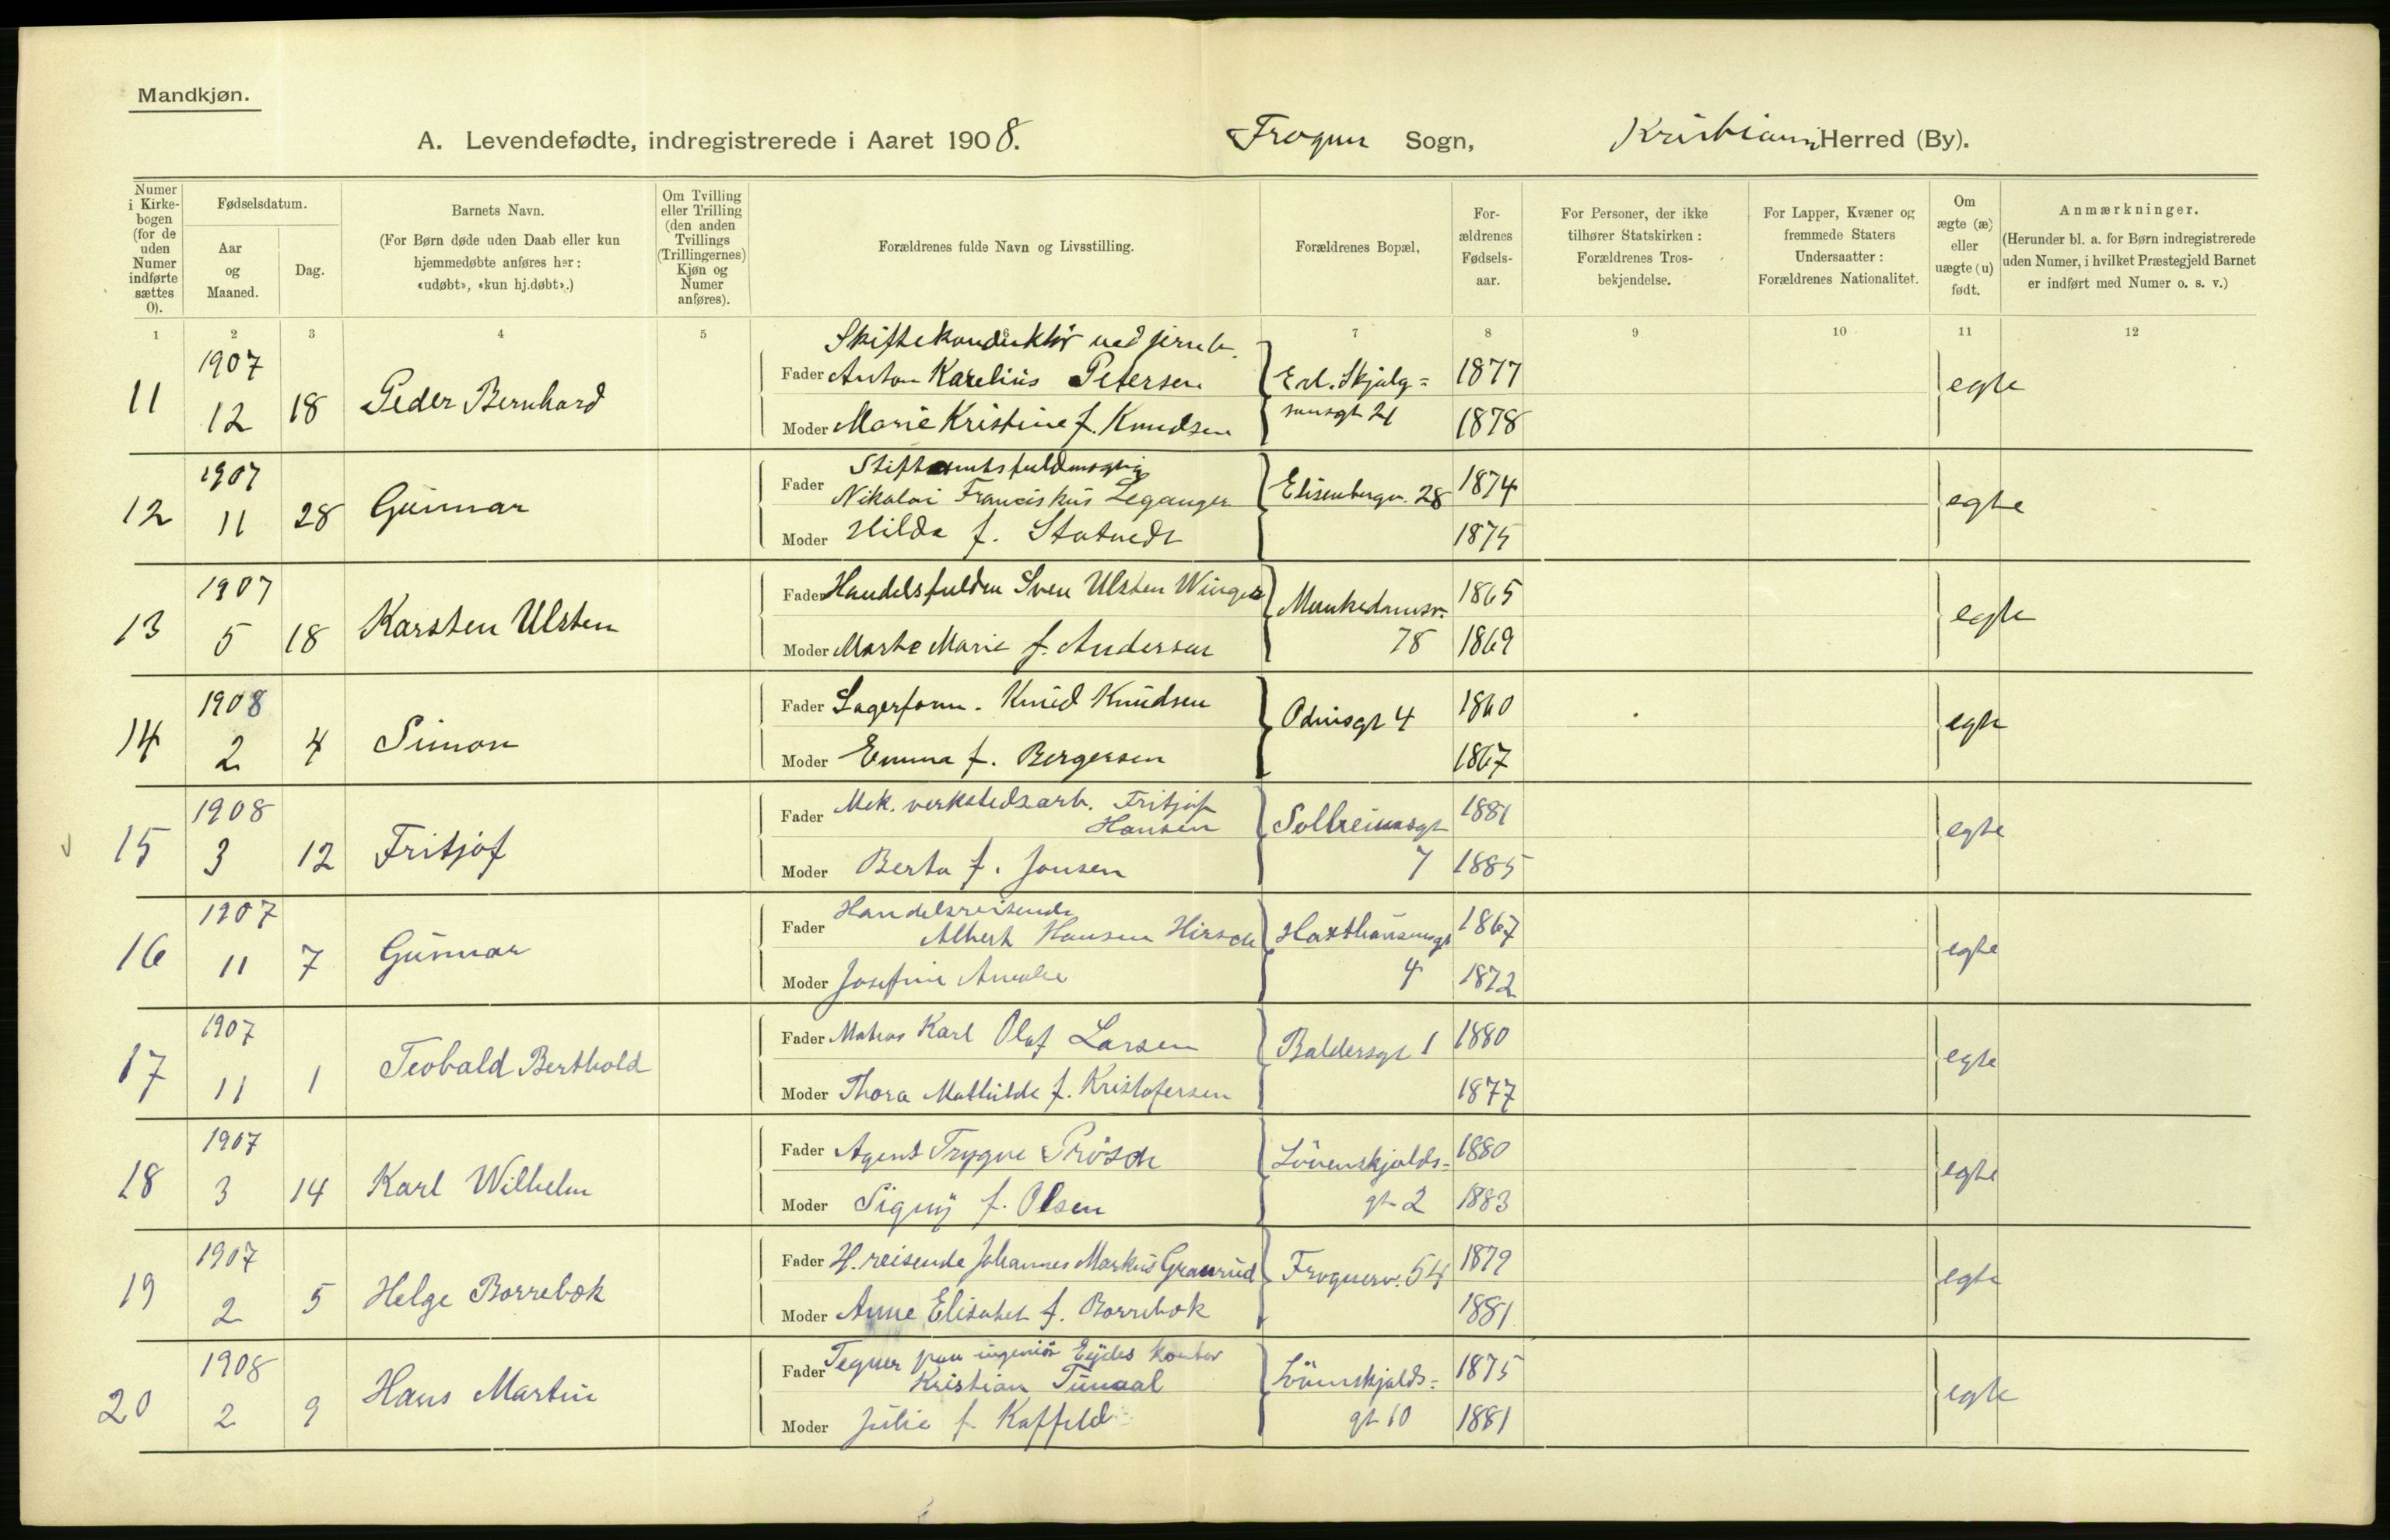 Mandkjøn.
A. Levendefødte, indregistrerede i Aaret 1908. Frogner Sogn, Kristiania Herred (By).
Numer i Kirkebogen (for de uden Numer indførte sættes 0).
Fødselsdatum.
Aar og Maaned.
Dag.
Barnets Navn.
(For Børn døde uden Daab eller kun
hjemmedøbte anføres her:
«udøbt», «kun hj.døbt».)
Om Tvilling eller Trilling (den anden Tvillings (Trillingernes) Kjøn og Numer anføres).
Forældrenes fulde Navn og Livsstilling.
Forældrenes Bopæl,
For-ældrenes Fødsels-aar.
For Personer, der ikke
tilhører Statskirken:
Forældrenes Tros-
bekjendelse.
For Lapper, Kvæner og
fremmede Staters
Undersaatter:
Forældrenes Nationalitet.
Om ægte (æ) eller uægte (u) født.
Anmærkninger.
(Herunder bl. a. for Børn indregistrerede
uden Numer, i hvilket Præstegjeld Barnet
er indført med Numer o. s. v.)
1 2 3 4 5 6 7 8 9 10 11 12
11 1907 12 18 Peder Bernhard
Skiftekonduktör ved jernb.
Fader Anton Karelius Petersen Erl. Skjalg= 1877 egte
Moder Marie Kristine f. Knudsen sonsgt 21 1878
12 1907 11 28 Gunnar
Stiftamtsfuldmægtig
Fader Nikolai Franciskus Leganger Elisenbergv. 28 1874 egte
Moder Hilda f. 1875
13 1907 5 18 Karsten Ulsten
Fader Handelsfuldm Sven Ulsten Winger Munkedamsv. 1865 egte
Moder Marte Marie f. Andersen 78 1869
14 1908 2 4 Simon
Fader Lagerform. Knud Knudsen Odinsgt 4 1860 egte
Moder Emma f. Bergersen 1867
15 1908 3 12 Fritjof
Fader Mek. verkstedsarb. Fritjof
Hansen Solheimsgt 1881 egte
Moder Berta f. Jonsen 7 1885
16 1907 11 7 Gunnar
Handelsreisende
Fader Albert Hansen Hirsch Haxthausensgt 1867 egte
Moder Josefine Amalie 4 1872
17 1907 11 1 Teobald Berthold
Fader Matros Karl Olaf Larsen Baldersgt 1 1880 egte
Moder Thora Mathilde f. Kristofersen 1877
18 1907 3 14 Karl Wilhelm
Fader Agent Trygve Prösch Lövenskjolds= 1880 egte
Moder Signy f. Olsen gt 2 1883
19 1907 2 5 Helge Borrebøk
Fader H. reisende Johannes Markus Granrud Frognerv. 54 1879 egte
Moder Anne Elisabet f. Borrebøk 1881
20 1908 2 9 Hans Martin
Fader Tegner paa ingeniör Eydes kontor
Kristian Tunaal Lövenskjolds= 1875 egte
Moder Julie f. Kaffeld gt 10 1881